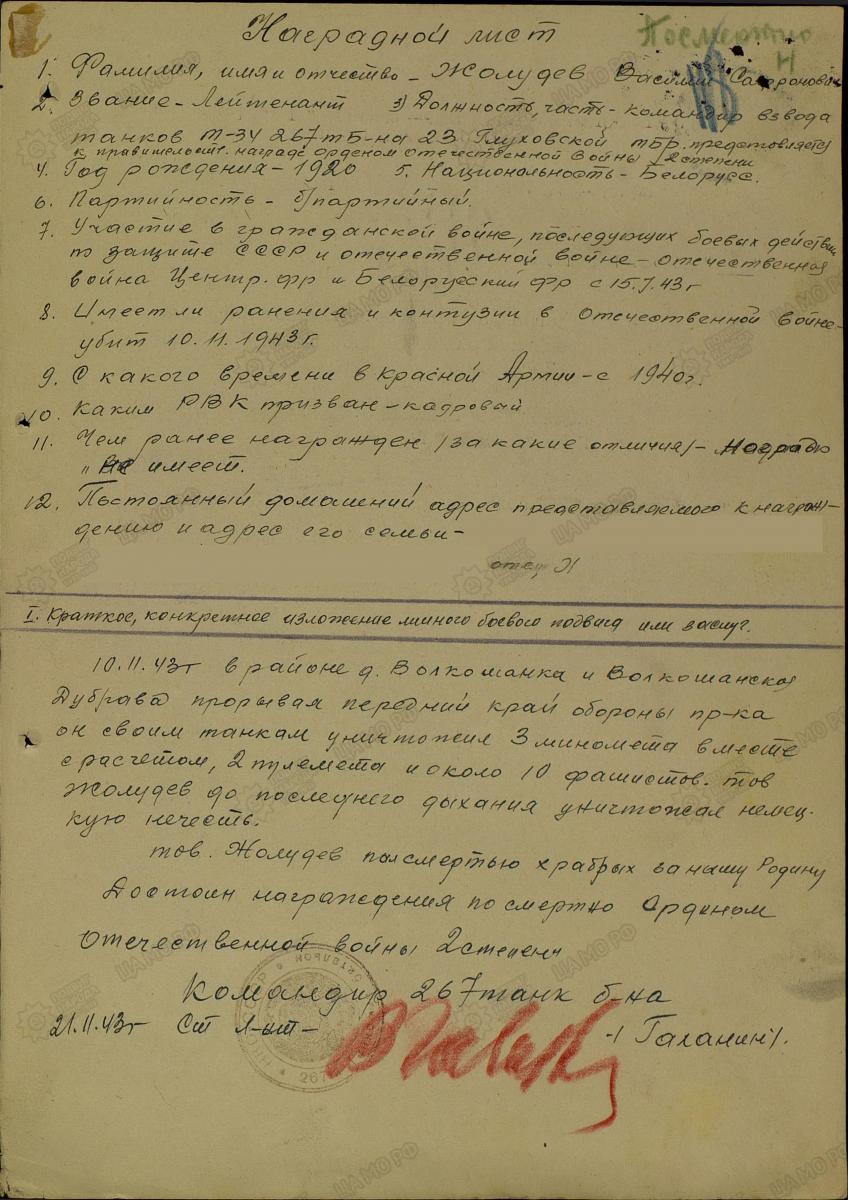 Наградной лист
Посмертно
1. Фамилия, имя и отчество – Жолудев Василий Сафронович
2. Звание – Лейтенант 3) Должность, часть – командир взвода
танков Т-34 267 тб-на 23 Глуховской тбр. представляется
к правительств. награде орденом отечественной войны 2 степени
4. Год рождения – 1920 5. Национальность – Белорусс.
6. Партийность – б/партийный.
7. Участие в гражданской войне, последующих боевых действий
по защите СССР и отечественной войне – отечественная
война Центр. фр и Белорусский фр с 15.7.43 г
8. Имеет ли ранения и контузии в Отечественной войне –
убит 10.11.1943 г.
9. С какого времени в Красной Армии – с 1940 г.
10. Каким РВК призван – кадровый
11. Чем ранее награжден /за какие отличия/ –
" не имеет.
12. Постоянный домашний адрес представляемого к награж-
дению и адрес его семьи –
отец
I. Краткое, конкретное изложение личного боевого подвига или заслуг.
10.11.43 г в районе д. Волкошанка и Волкошанская
Дубрава прорывая передний край обороны пр-ка
он своим танкам уничтожил 3 миномета вместе
с расчетом, 2 пулемета и около 10 фашистов. тов
Жолудев до последнего дыхания уничтожал немец-
кую нечесть.
тов. Жолудев пал смертью храбрых за нашу Родину
Достоин награждения посмертно Орденом
Отечественной войны 2 степени
Командир 267 танк б-на
21.11.43 г Ст л-нт – / Галанин /.